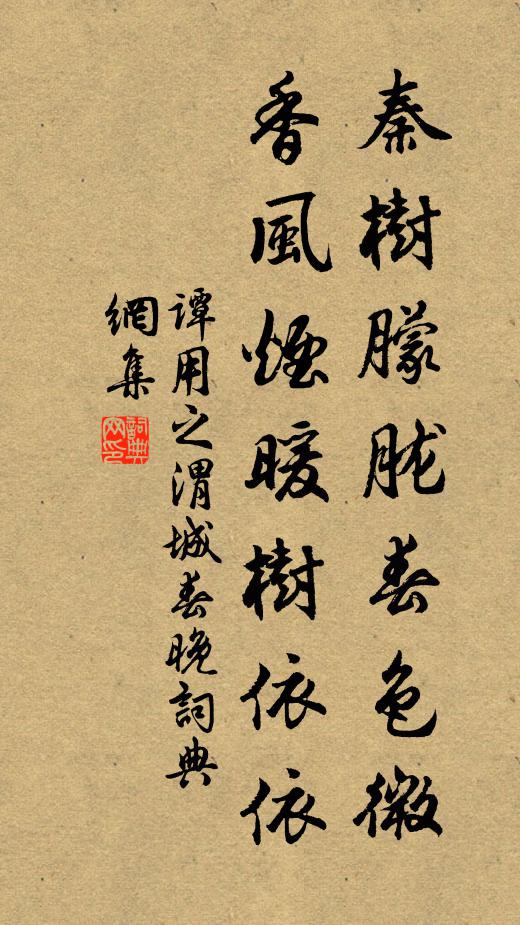 秦樹朦朧春色微
香風煙暖樹依依
譚用之渭城春晚詞典
網集
詞典
网印